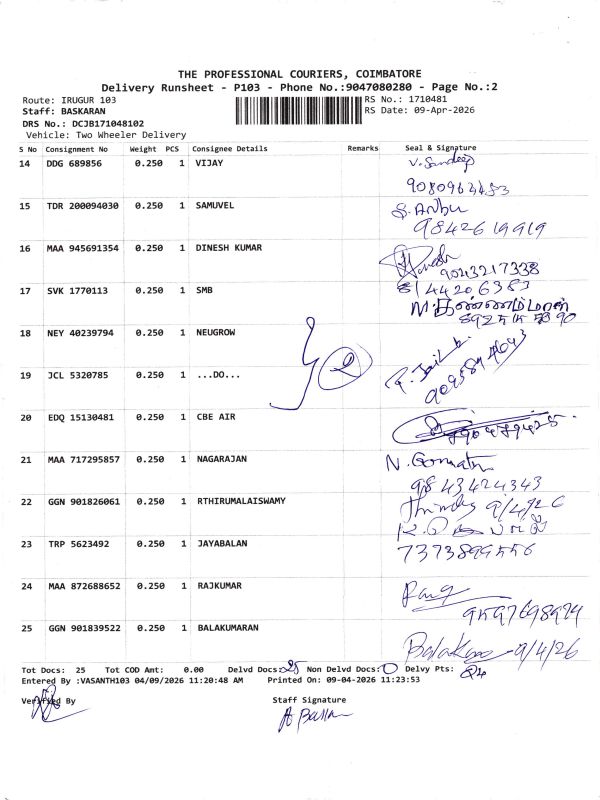 THE PROFESSIONAL COURIERS, COIMBATORE
Delivery Runsheet - P103 - Phone No.:9047080280 - Page No.:2
Route: IRUGUR 103 RS No.: 1710481
Staff: BASKARAN RS Date: 09-Apr-2026
DRS No.: DCJB171048102
Vehicle: Two Wheeler Delivery
S No Consignment No Weight PCS Consignee Details Remarks Seal & Signature
14 DDG 689856 0.250 1 VIJAY V. Sandeep
9080963453
15 TDR 200094030 0.250 1 SAMUVEL S. Anbu
9842619919
16 MAA 945691354 0.250 1 DINESH KUMAR
9043217338
17 SVK 1770113 0.250 1 SMB 8144206383
18 NEY 40239794 0.250 1 NEUGROW
2
19 JCL 5320785 0.250 1 ...DO...
20 EDQ 15130481 0.250 1 CBE AIR
21 MAA 717295857 0.250 1 NAGARAJAN N. Gomathi
9843424343
22 GGN 901826061 0.250 1 RTHIRUMALAISWAMY 9/4/26
23 TRP 5623492 0.250 1 JAYABALAN 7373899556
24 MAA 872688652 0.250 1 RAJKUMAR
9597698974
25 GGN 901839522 0.250 1 BALAKUMARAN
9/4/26
Tot Docs: 25 Tot COD Amt: 0.00 Delvd Docs: 25 Non Delvd Docs: 0 Delvy Pts: 24
Entered By :VASANTH103 04/09/2026 11:20:48 AM Printed On: 09-04-2026 11:23:53
Verified By Staff Signature